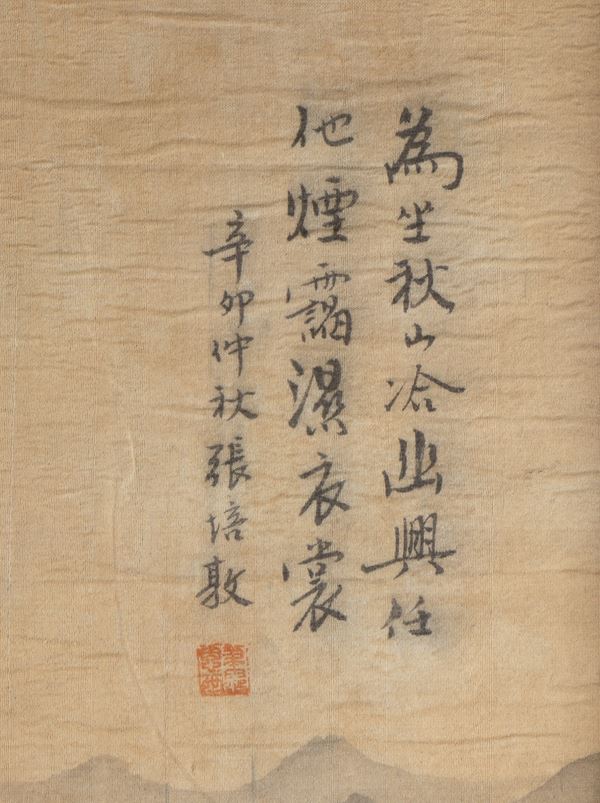 為坐秋山冾幽興任
他煙靄濕衣裳
辛卯仲秋張培敦